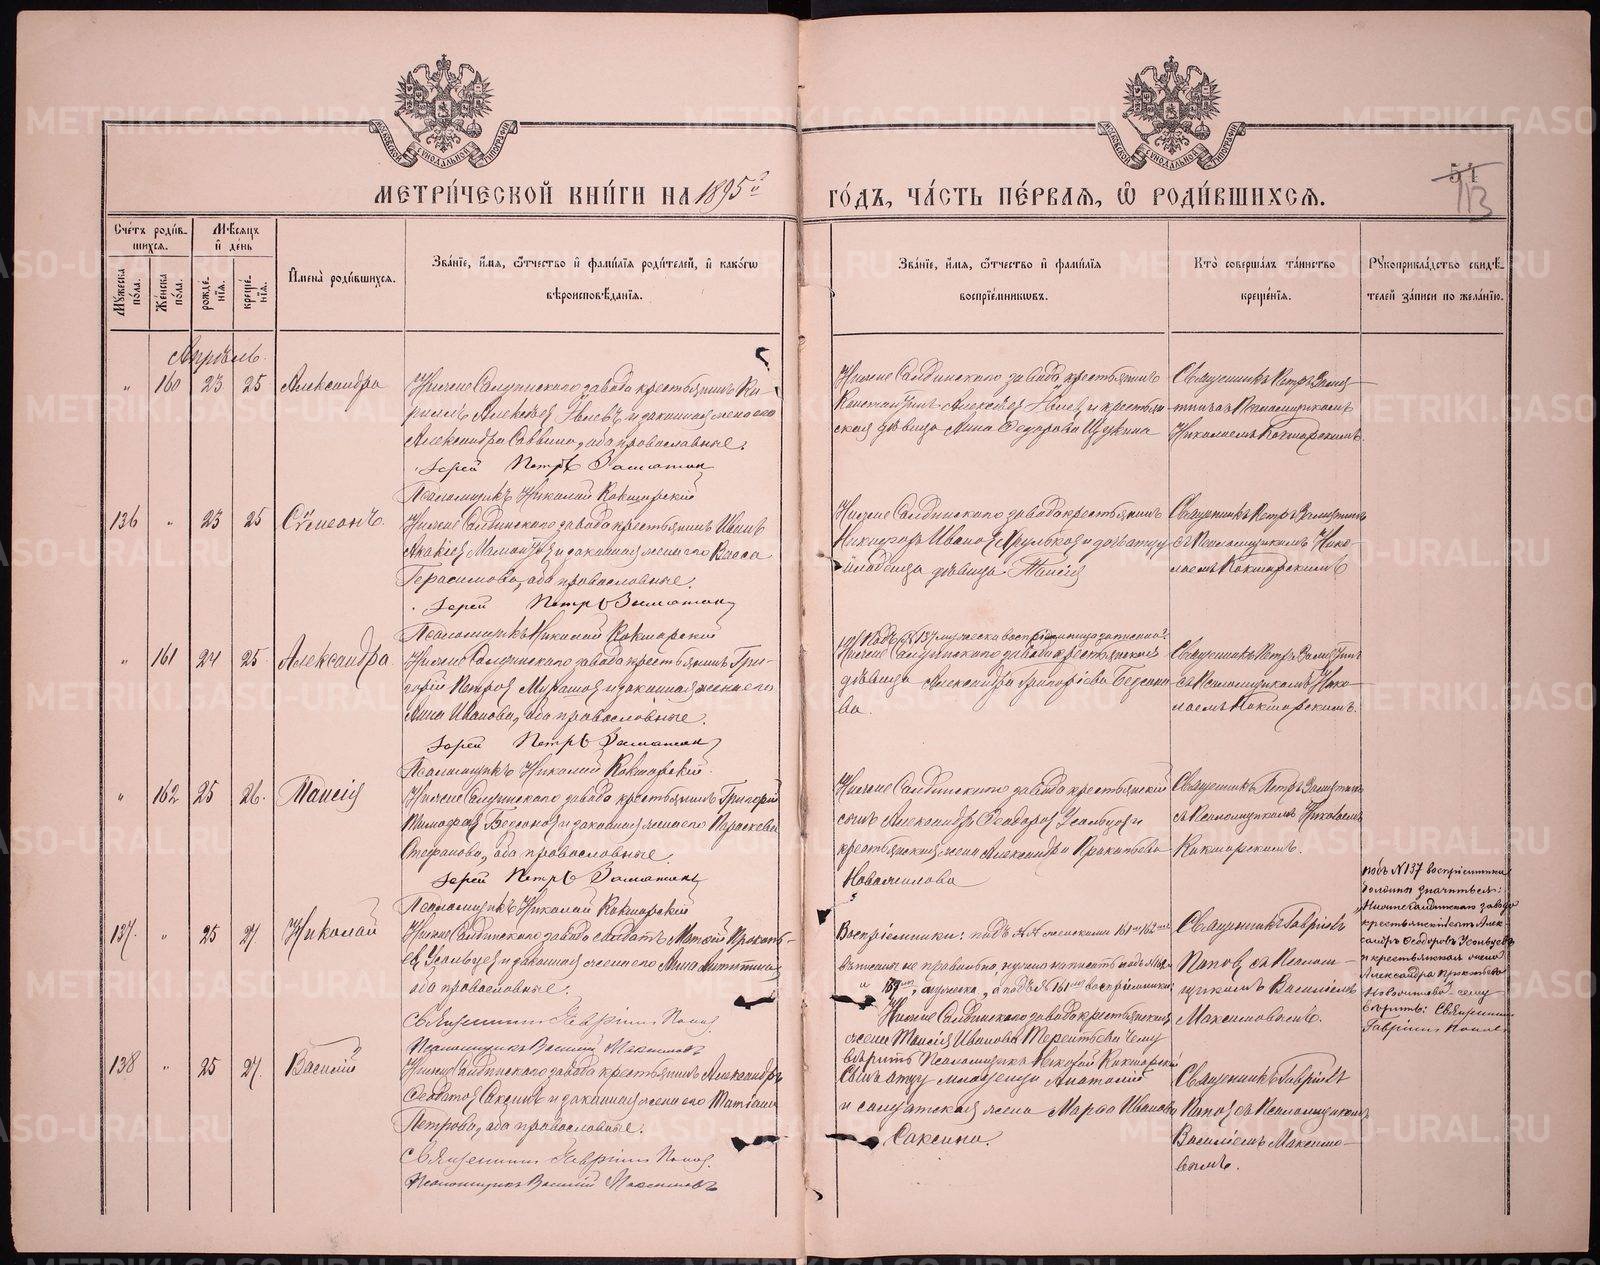 МЕТРИ́ЧЕСКОЙ КНИ́ГИ НА 1895й ГО́ДЪ, ЧА́СТЬ ПЕ́РВАЯ, Ѿ РОДИ́ВШИХСЯ.
МОСКОВСКОЙ СѴНОДАЛЬНОЙ ТИПОГРАФІИ
МОСКОВСКОЙ СѴНОДАЛЬНОЙ ТИПОГРАФІИ
51
113
Сче́тъ роди́в-
шихся.
Му́жеска по́ла.
Же́нска по́ла.
Мѣ́сяцъ
и҆ де́нь
рожде́-
нїѧ.
креще́-
нїѧ.
И҆мена̀ роди́вшихся.
Зва́нїе, и҆́мѧ, ѻ҆́тчество и҆ фами́лїѧ роди́телей, и҆ како́гѡ
вѣроисповѣ́данїѧ.
Зва́нїе, и҆́мѧ, ѻ҆́тчество и҆ фами́лїѧ
воспрїе́мникѡвъ.
Кто̀ соверша́лъ та́инство
креще́нїѧ.
Рꙋкоприкла́дство свидѣ́-
телей за́писи по жела́нїю.
Апрѣль.
" 160 23 25 Александра
Нижне Салдинскаго завода крестьянинъ Ки-
риллъ Алексѣев и законная жена его
Александра Саввина, оба православные.
Іерей Петръ Замятин
Псаломщикъ Николай Кокшарскій
Нижне Салдинскаго завода крестьянинъ
Константинъ Алексѣев и крестьян
ская дѣвица Анна Федорова Щукина
Священникъ Петръ Замя-
тинъ съ Псаломщикомъ
Николаемъ Кокшарскимъ.
136 " 23 25 Сѵмеонъ.
Нижне Салдинскаго завода крестьянинъ Иванъ
и законная жена его Васса
Герасимова, оба православные.
Іерей Петръ Замятин
Псаломщикъ Николай Кокшарскій
Нижне Салдинскаго завода крестьянинъ
Никифоръ Иванов и дочь отцу
младенца дѣвица Таисія
Священникъ Петръ Замятинъ
съ Псаломщикомъ Нико-
лаемъ Кокшарскимъ
" 161 24 25. Александра.
Нижне Салдинскаго завода крестьянинъ Гри-
горій Петров Мурашов и законная жена его
Анна Иванова, оба православные.
Іерей Петръ Замятин
Псаломщикъ Николай Кокшарскій.
Нижне Салдинскаго завода крестьянская
дѣвица Александра Григоріева Бессоно-
ва.
Священникъ Петръ Замятинъ
съ Псаломщикомъ Нико-
лаемъ Кокшарскимъ.
" 162 25 26. Таисія
Нижне Салдинскаго завода крестьянинъ Григорій
Тимофеев Бессонов и законная жена его Параскева
Стефанова, оба православные.
Іерей Петръ Замятин
Псаломщикъ Николай Кокшарскій
Нижне Салдинскаго завода крестьянскій
сынъ Александръ Феодоров Усольцев и
крестьянская жена Александра Прокопьева
Новожилова
Священникъ Петръ Замятинъ
съ Псаломщикомъ Николаемъ
Кокшарскимъ.
137. " 25 27 Николай
Нижне Салдинскаго завода солдатъ Матвѣй Прокопь-
ев Усольцев и законная жена его Анна Никитина
оба православные.
Священникъ Гавріилъ Попов
Псаломщикъ Василій Максимовъ
Воспріемники: подъ №№ женскими 161 и 162
вписаны не правильно, нужно написать подъ №
Нижне Салдинскаго завода крестьянская
жена Таисія Иванова Терентьева чему
вѣрить Псаломщикъ Николай Кокшарскій
Священникъ Гавріилъ
Попов съ Псалом-
щикомъ Василіемъ
Максимовымъ.
подъ №137 воспріемники
должны значиться:
Нижнесалдинскаго завода
крестьянскій сынъ Алек-
сандръ Феодоровъ Усольцевъ
и крестьянская жена
Александра Прокопьева
Новожилова чему
вѣрить: Священник
Гавріилъ Попов
138 " 25 27. Василій
Нижне Салдинскаго завода крестьянинъ Александръ
Саксинъ и законная жена его Татіана
Петрова, оба православные.
Священник Гавріилъ Попов.
Псаломщикъ Василій Максимовъ
Сынъ отцу младенца Анатолій
и солдатская жена Марѳа Иванова
Саксина.
Священникъ Гавріилъ
Попов съ Псаломщикомъ
Василіемъ Максимо-
вымъ.
METRIKI.GASO-URAL.RU